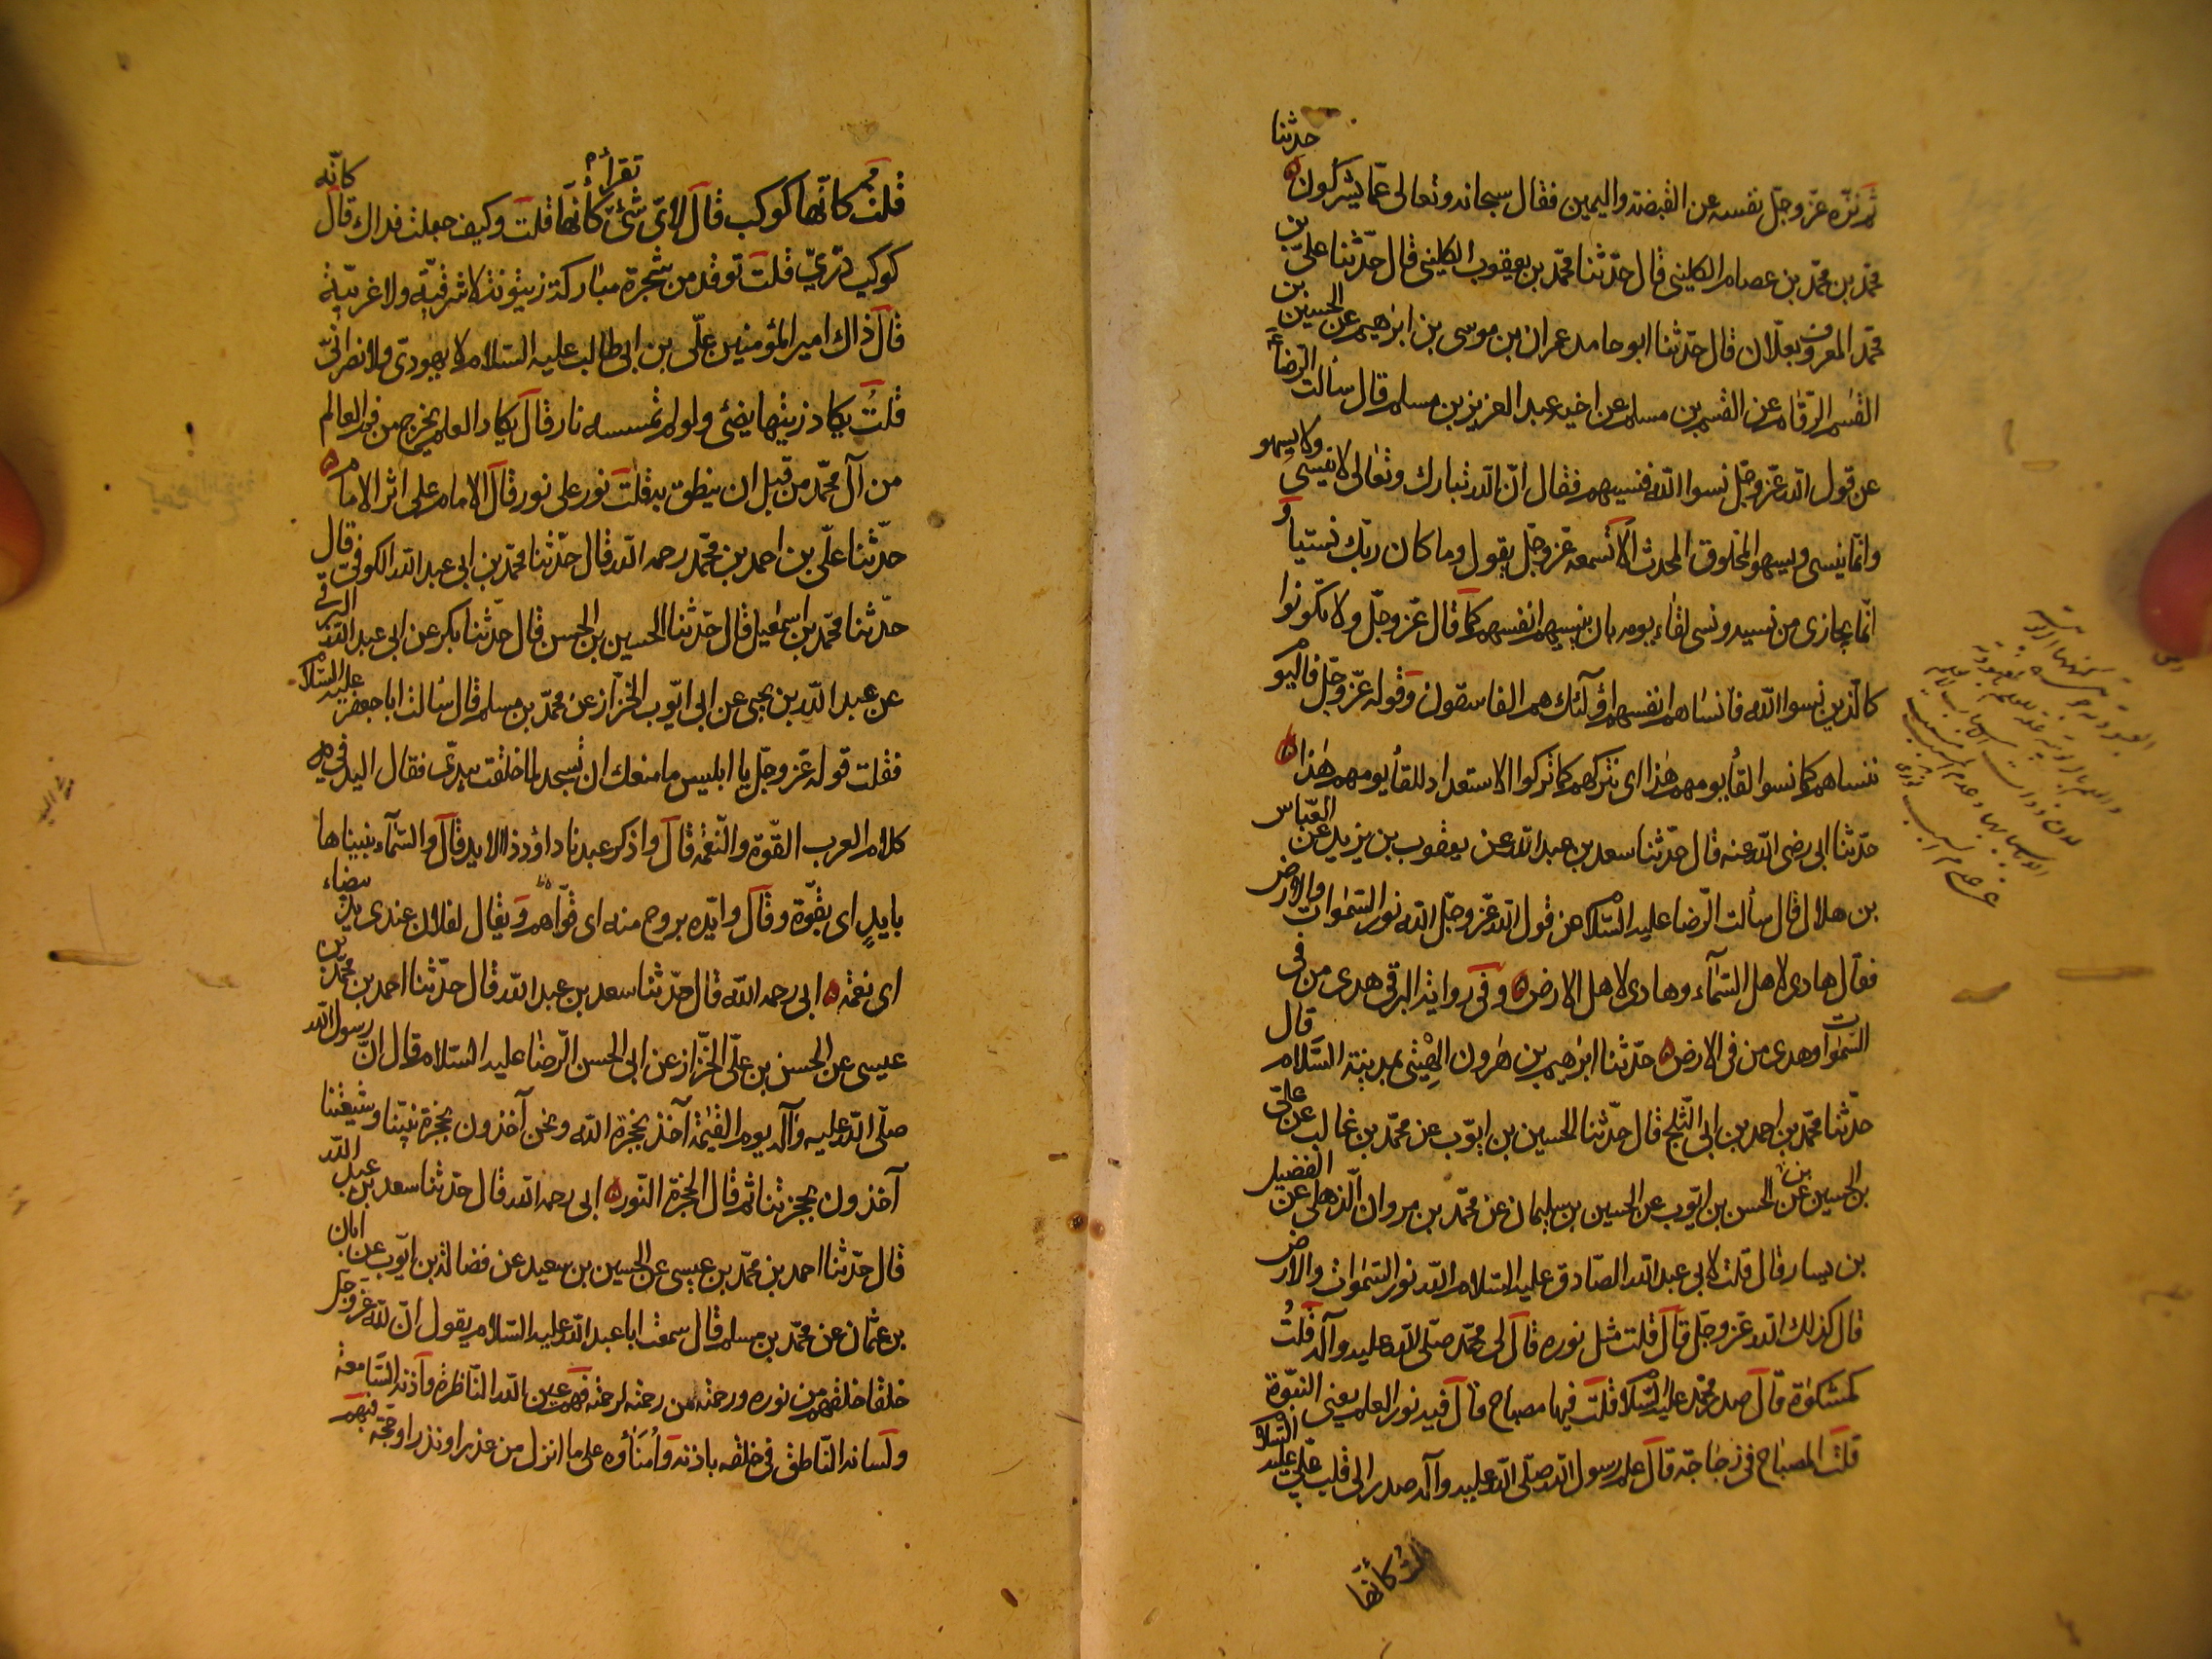 حدثنا
ثم نزّه عزّ وجلّ نفسه عن القبضة واليمين فقال سبحانه وتعالى عمّا يشركون
محمّد بن محمّد بن عصام الكليني قال حدّثنا محمّد بن يعقوب الكليني قال حدّثنا عليّ بن
محمّد المعروف بعلّان قال حدّثنا ابو حامد عمران بن موسى بن ابرهيم عن الحسين بن
القسم الرّقام عن القسم بن مسلم عن اخيه عبد العزيز بن مسلم قال سألت الرّضا ع
عن قول الله عزّ وجلّ نسوا الله فنسيهم فقال انّ الله تبارك وتعالى لا ينسى ولا يسهو
وانّما ينسى ويسهو المخلوق المحدث الا تسمعه عزّ وجلّ يقول وما كان ربّك نسيّا و
انّما يجازى من نسيه ونسى لقاء يومه بان ينسيهم انفسهم كما قال عزّ وجلّ ولا تكونوا
كالّذين نسوا الله فانساهم انفسهم اولئك هم الفاسقون وقوله عزّ وجلّ فاليوم
ننساهم كما نسوا لقاء يومهم هذا اى نتركهم كما تركوا الاستعداد للقاء يومهم هذا
حدّثنا ابى رضى الله عنه قال حدّثنا سعد بن عبد الله عن يعقوب بن يزيد عن العبّاس
بن هلال قال سألت الرّضا عليه السّلام عن قول الله عزّ وجلّ الله نور السّموات والارض
فقال هادى لاهل السّماء وهادى لاهل الارض وفى رواية البرقى هدى من فى
السّموات وهدى من فى الارض حدّثنا ابرهيم بن هرون الهيثى بمدينة السّلام قال
حدّثنا محمّد بن احمد بن ابى الثّلج قال حدّثنا الحسين بن ايّوب عن محمّد بن غالب عن علىّ
بن الحسين عن الحسن بن ايّوب عن الحسين بن سليمان عن محمّد بن مروان الذهلى عن الفضيل
بن يسار قال قلت لابى عبد الله الصّادق عليه السّلام الله نور السّموات والارض
قال كذلك الله عزّ وجلّ قال قلت مثل نوره قال لى محمّد صلّى الله عليه وآله قلتُ
كمشكوة قال صدر محمّد عليه السّلام قلت فيها مصباح قال فيه نور العلم يعنى النبوّة
قلت المصباح فى زجاجة قال علم رسول الله صلّى الله عليه وآله صدر الى قلب علىّ عليه السّلام
قلت كأنّها
قلت كأنّها كوكب قال لاىّ شئ تقرأ كأنّها قلت وكيف جعلت فداك قال كانّه
كوكب درّىّ قلت توقد من شجرة مباركة زيتونة لا شرقيّة ولا غربيّة
قال ذاك امير المؤمنين علّى بن ابى طالب عليه السّلام لا يهودىّ ولا نصرانىّ
قلتُ يكاد زيتها يضئ ولو لم تمسسه نار قال يكاد العلم يخرج من فم العالم
من آل محمّد من قبل ان ينطق به قلت نور على نور قال الامام على اثر الامام
حدّثنا علّى بن احمد بن محمّد رحمه الله قال حدّثنا محمّد بن ابى عبد الله الكوفى قال
حدّثنا محمّد بن اسمعيل قال حدّثنا الحسين بن الحسن قال حدّثنا بكر عن ابى عبد الله البرقى
عن عبد الله بن يحيى عن ابى ايّوب الخزّاز عن محمّد بن مسلم قال سألت ابا جعفر عليه السّلام
فقلت قوله عزّ وجلّ يا ابليس ما منعك ان تسجد لما خلقت بيدىّ فقال اليد فى
كلام العرب القوّة والنّعمة قال واذكر عبدنا داود ذا الايد قال والسّماء بنيناها
بايدٍ اى بقوّة وقال وايّده بروح منه اى قوّاهم ويقال لفلان عندى يد بيضاء
اى نعمة ابى رحمه الله قال حدّثنا سعد بن عبد الله قال حدّثنا احمد بن محمّد بن
عيسى عن الحسن بن علّى الخزّاز عن ابى الحسن الرّضا عليه السّلام قال انّ رسول الله
صلّى الله عليه وآله يوم القيمة آخذ بحجزة الله ونحن آخذون بحجزة نبيّنا وشيعتنا
آخذون بحجزتنا ثم قال الحجزة النّور ابى رحمه الله قال حدّثنا سعد بن عبد الله
قال حدّثنا احمد بن محمّد بن عيسى عن الحسين بن سعيد عن فضالة بن ايّوب عن ابان
بن عثمان عن محمّد بن مسلم قال سمعت ابا عبد الله عليه السّلام يقول انّ لله عزّ وجلّ
خلقا خلقهم من نوره ورحمة من رحمته لرحمته فهم عين الله النّاظرة واذنه السّامعة
ولسانه النّاطق فى خلقه باذنه وامناؤه على ما انزل من عذر او نذر او حجّة فبهم